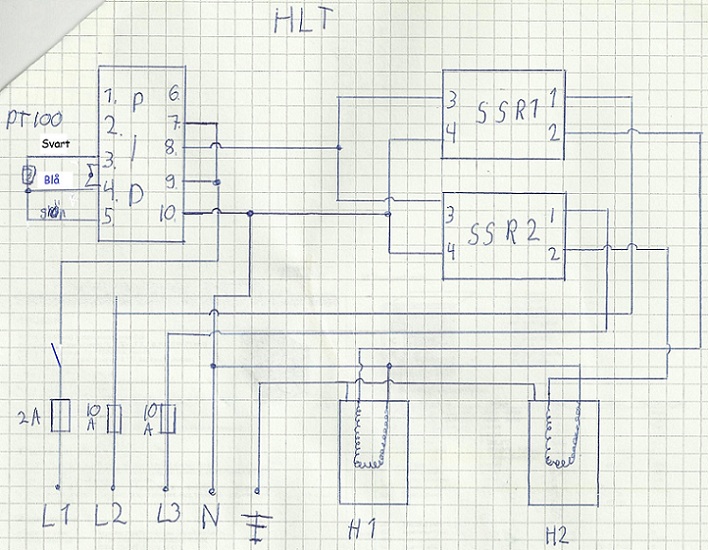 HLT
PT100
Svart
Blå
1. P 6.
2. 7.
3. I 8.
4. D 9.
5. 10.
3 SSR1 1
4 2
3 SSR2 1
4 2
2A
10 A
10 A
L1 L2 L3 N
H1 H2